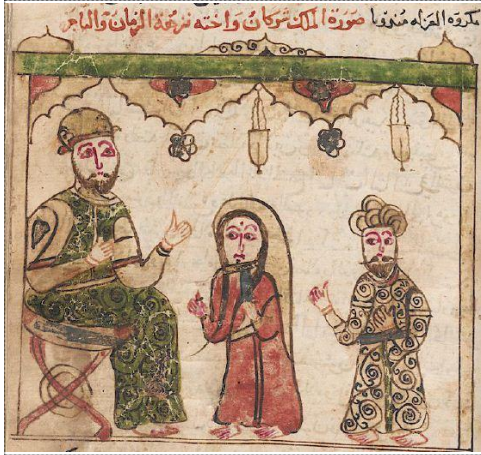 مكروه صورة الملك شركان واخته نزهة الزمان والتاجر